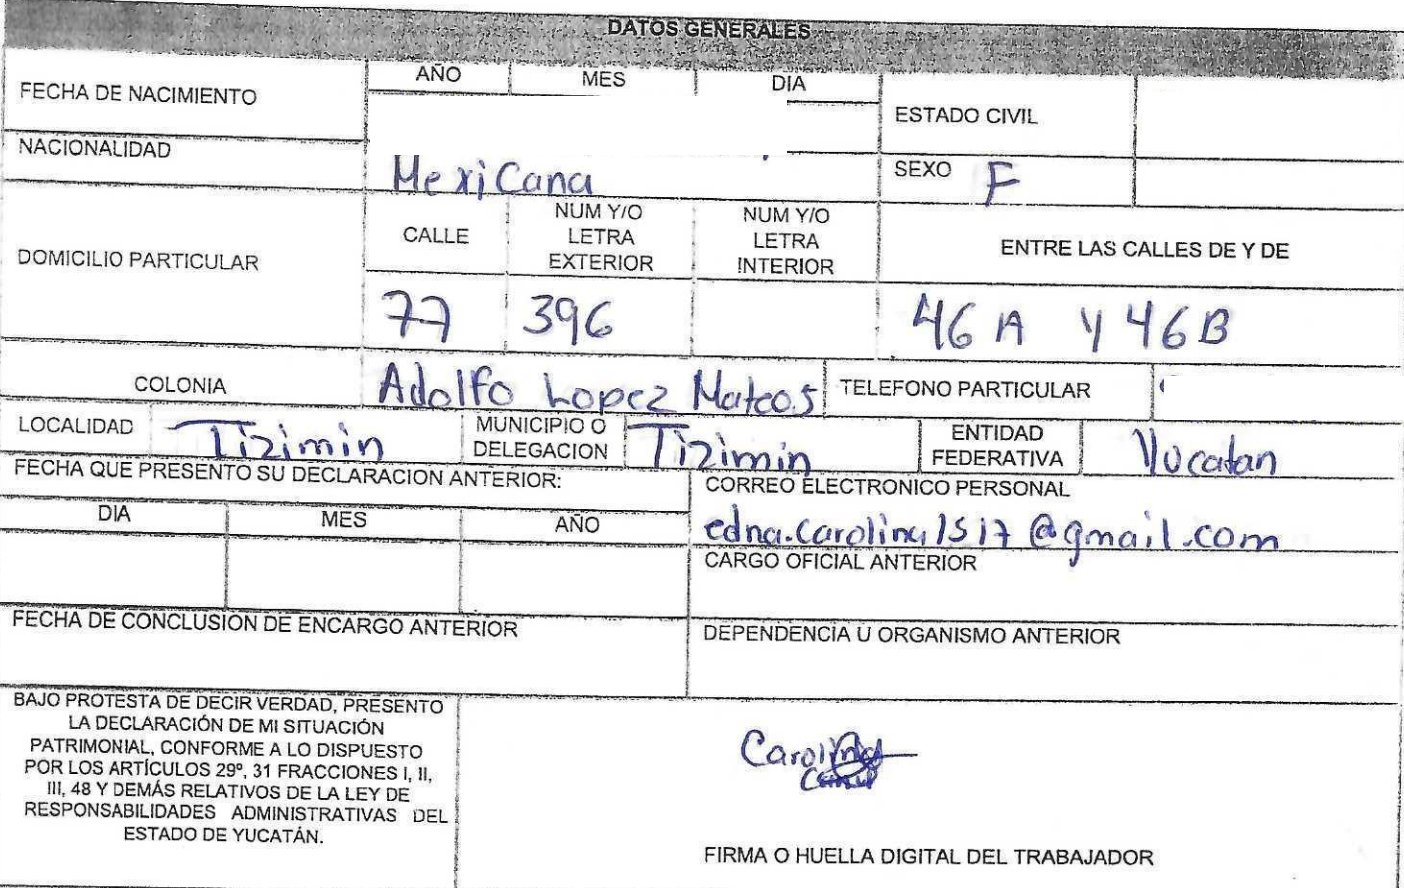 DATOS GENERALES
FECHA DE NACIMIENTO
AÑO MES DIA
ESTADO CIVIL
NACIONALIDAD
Mexicana
SEXO F
DOMICILIO PARTICULAR
CALLE
NUM Y/O
LETRA
EXTERIOR
NUM Y/O
LETRA
INTERIOR
ENTRE LAS CALLES DE Y DE
77 396 46 A y 46B
COLONIA Adolfo Lopez Mateos TELEFONO PARTICULAR
LOCALIDAD Tizimin
MUNICIPIO O
DELEGACION
Tizimin
ENTIDAD
FEDERATIVA
Yucatan
FECHA QUE PRESENTO SU DECLARACION ANTERIOR:
DIA MES AÑO
CORREO ELECTRONICO PERSONAL
edna.carolina1517@gmail.com
CARGO OFICIAL ANTERIOR
FECHA DE CONCLUSION DE ENCARGO ANTERIOR
DEPENDENCIA U ORGANISMO ANTERIOR
BAJO PROTESTA DE DECIR VERDAD, PRESENTO
LA DECLARACIÓN DE MI SITUACIÓN
PATRIMONIAL, CONFORME A LO DISPUESTO
POR LOS ARTÍCULOS 29º, 31 FRACCIONES I, II,
III, 48 Y DEMÁS RELATIVOS DE LA LEY DE
RESPONSABILIDADES ADMINISTRATIVAS DEL
ESTADO DE YUCATÁN.
Carolina
FIRMA O HUELLA DIGITAL DEL TRABAJADOR